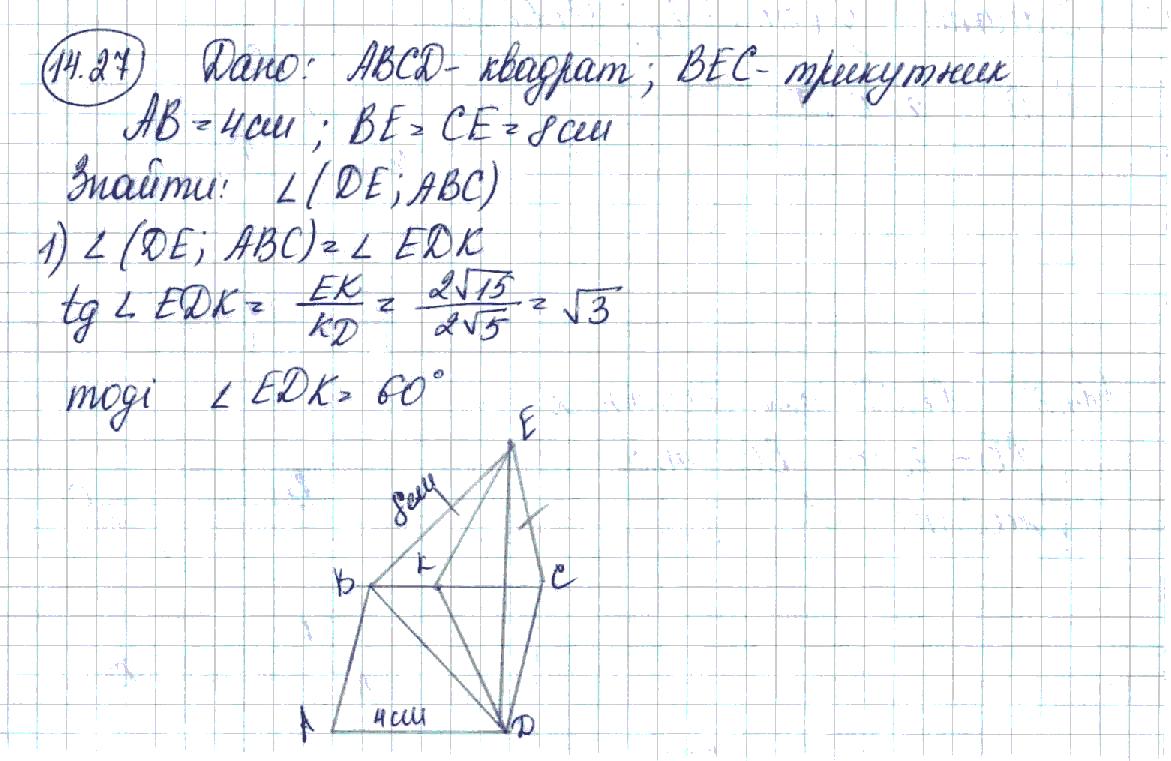 14.27 Дано: ABCD - квадрат; BEC - трикутник
AB = 4см; BE = CE = 8см
Знайти: ∠(DE; ABC)
1) ∠(DE; ABC) = ∠EDK
tg ∠EDK = EK/KD = 2√15/2√5 = √3
тоді ∠EDK = 60°
E
8см
B K C
A 4см D